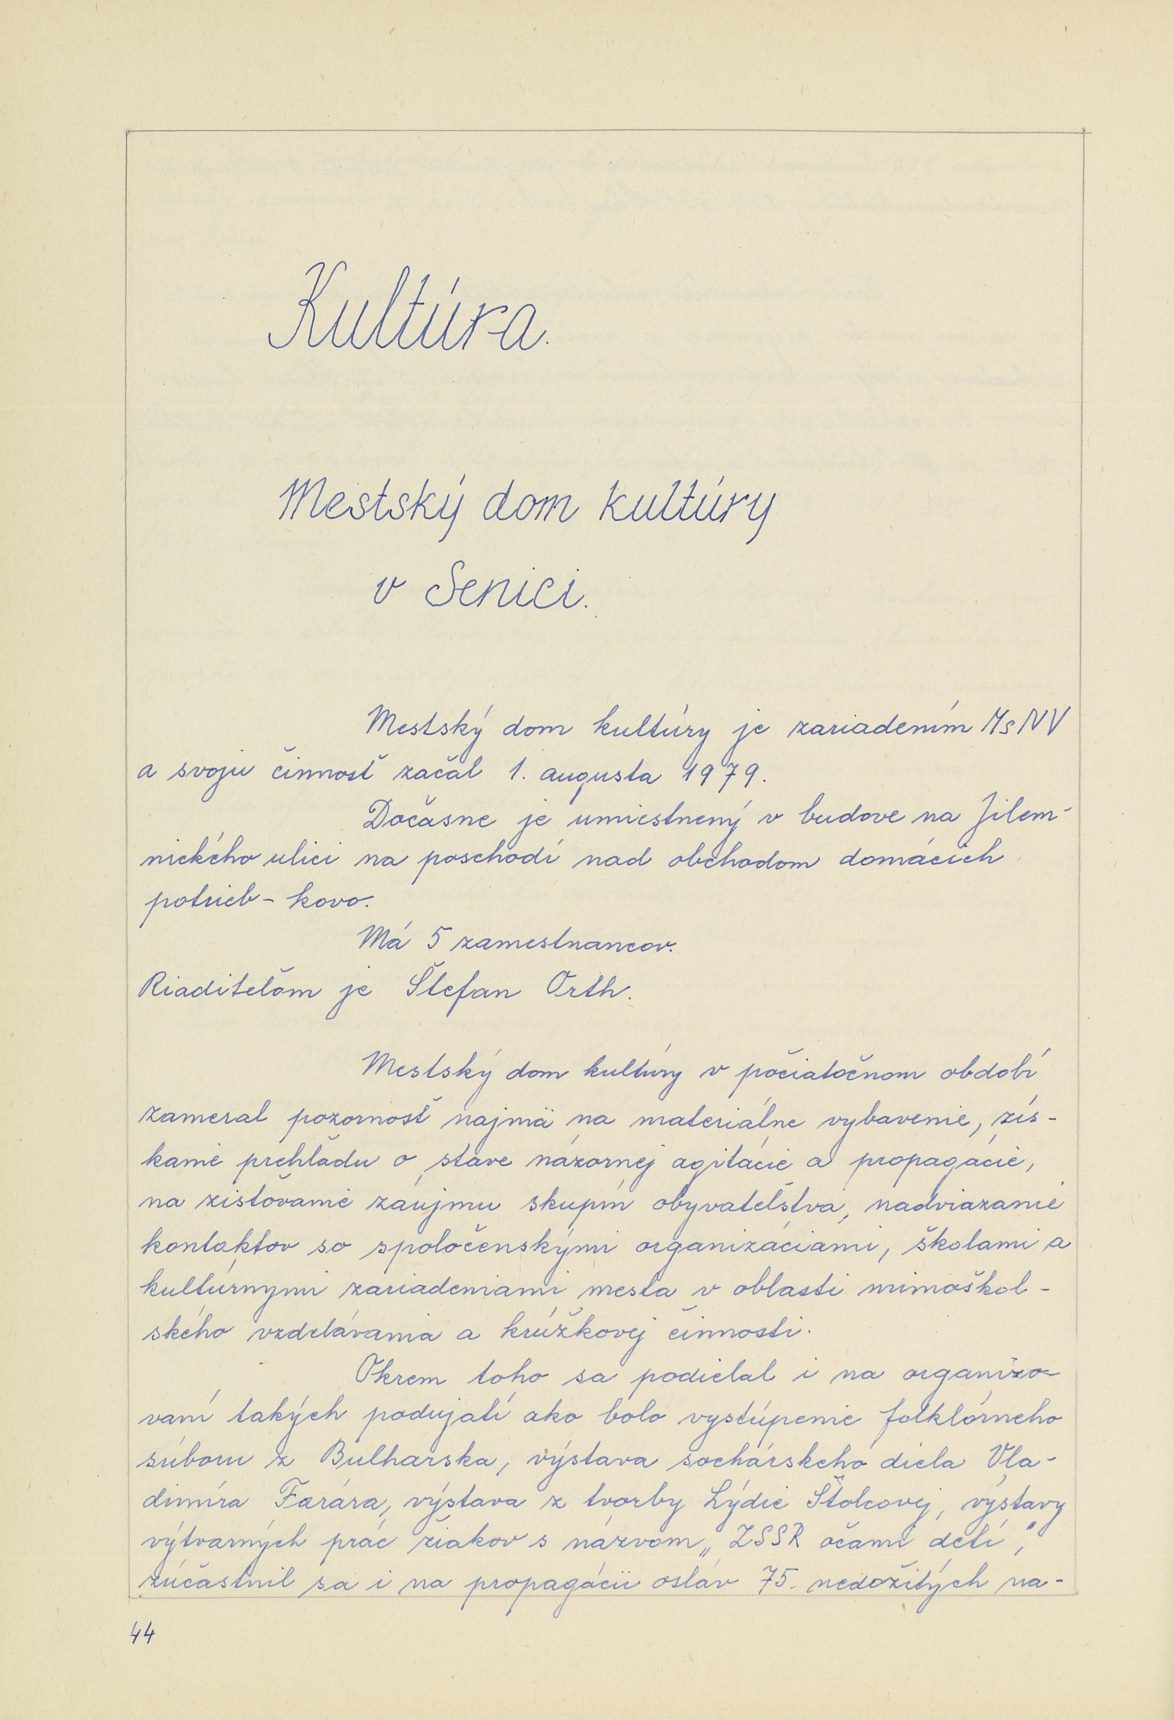 Kultúra.
Mestský dom kultúry
v Senici.
Mestský dom kultúry je zariadením MsNV
a svoju činnosť začal 1. augusta 1979.
Dočasne je umiestnený v budove na Jilem-
nického ulici na poschodí nad obchodom domácich
potrieb - kovo.
Má 5 zamestnancov.
Riaditeľom je Štefan Orth.
Mestský dom kultúry v počiatočnom období
zameral pozornosť najmä na materiálne vybavenie, zís-
kanie prehľadu o stave názornej agitácie a propagácie,
na zisťovanie záujmu skupín obyvateľstva, nadviazanie
kontaktov so spoločenskými organizáciami, školami a
kultúrnymi zariadeniami mesta v oblasti mimoškol-
ského vzdelávania a krúžkovej činnosti.
Okrem toho sa podielal i na organizo-
vaní takých podujatí ako bolo vystúpenie folklórneho
súboru z Bulharska, výstava sochárskeho diela Vla-
dimíra Farára, výstava z tvorby Lýdie Štolcovej, výstavy
výtvarných prác žiakov s názvom „ZSSR očami detí,"
zúčastnil sa i na propagácii osláv 75. nedožitých na-
44